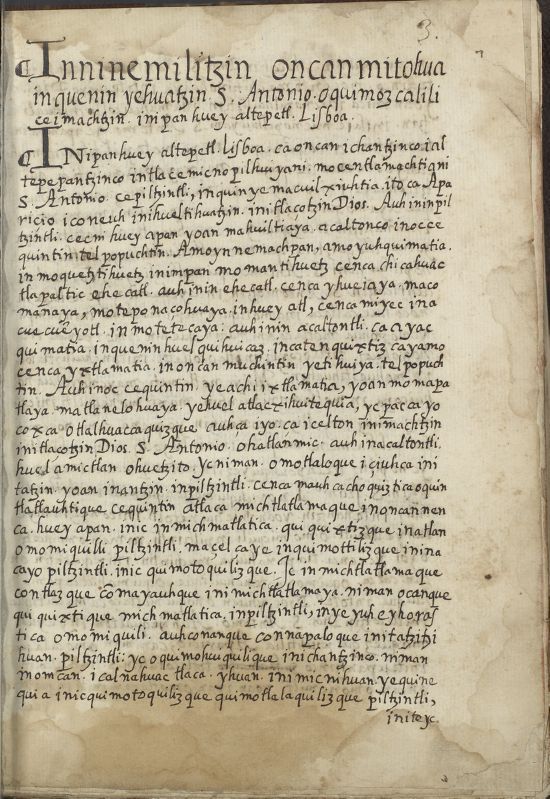 3.
Inninemilitzin oncan mitohua
in quenin yehuatzin S. Antonio. oquimozcalili
ce imachtzin. inipan huey altepetl. Lisboa.
INipan huey altepetl. Lisboa. ca oncan ichantzinco. ial
tepepantzinco intlacemicnopilhuiyani. mocentlamachtiqni
S. Antonio. ce piltzintli, inquin ye macuilxiuhtia. itoca Apa
ricio iconeuh inihueltihuatzin. initlacotzin Dios. Auh ininpil
tzintli. cecni huey apan yoan mahuiltiaya. acaltonco inocce
quintin telpopuchtin. Amo ynnemachpan, amo yuh quimatia.
in moquetztihuetz inimpan momantihuetz cenca chicahuac
tlapaltic ehecatl. auh inin ehecatl. cenca yhueiaya. maco
manaya, moteponaçohuaya. in huey atl, cenca miyec ina
cuecueyotl. in motetecaya: auh inin acaltontli. ca ayac
quimatia. in quenin huel quihuicaz. incatenquixtiz cayamo
cenca yxtlamatia. in oncan muchintin yetihuiya. telpopuch
tin. Auh inoc cequintin. ye achi ixtlamatia, yoan momapa
tlaya. matlanelohuaya. yehuel atlacxihuitequia, yc paccayo
coxca otlalhuaccaquizque, auh ça iyo. ca icelton inimachtzin
initlacotzin Dios. S. Antonio. ohatlanmic. auh inacaltontli.
huel amictlan ohuetzito. Yc niman. omotlaloque içiuhca ini
tatzin. yoan inantzin. inpiltzintli. cenca mauhcachoquiztica oquin
tlatlauhtique cequintin atlaca michtlatlamaque, in oncan nen
ca. huey apan. inic in michmatlatica. quiquixtizque inatlan
omomiquili piltzintli. maçel ca ye inquimottilizque inina
cayo piltzintli. inic quimotoquilizque. Ic in michtlatlamaque
contlazque comayauhque ini michtlatlamaya. niman ocanque
quiquixtique michmatlatica. inpiltzintli, in ye yuh ey horas
tica omomiquili. auh conanque connapaloque initatzitzi
huan. piltzintli: yc oquimohuiquilique inichantzinco. niman
in oncan. icalnahuac tlaca. yhuan. inimicnihuan. yequine
quia inic quimotoquilizque quimotlalaquilizque piltzintli,
initeyc.